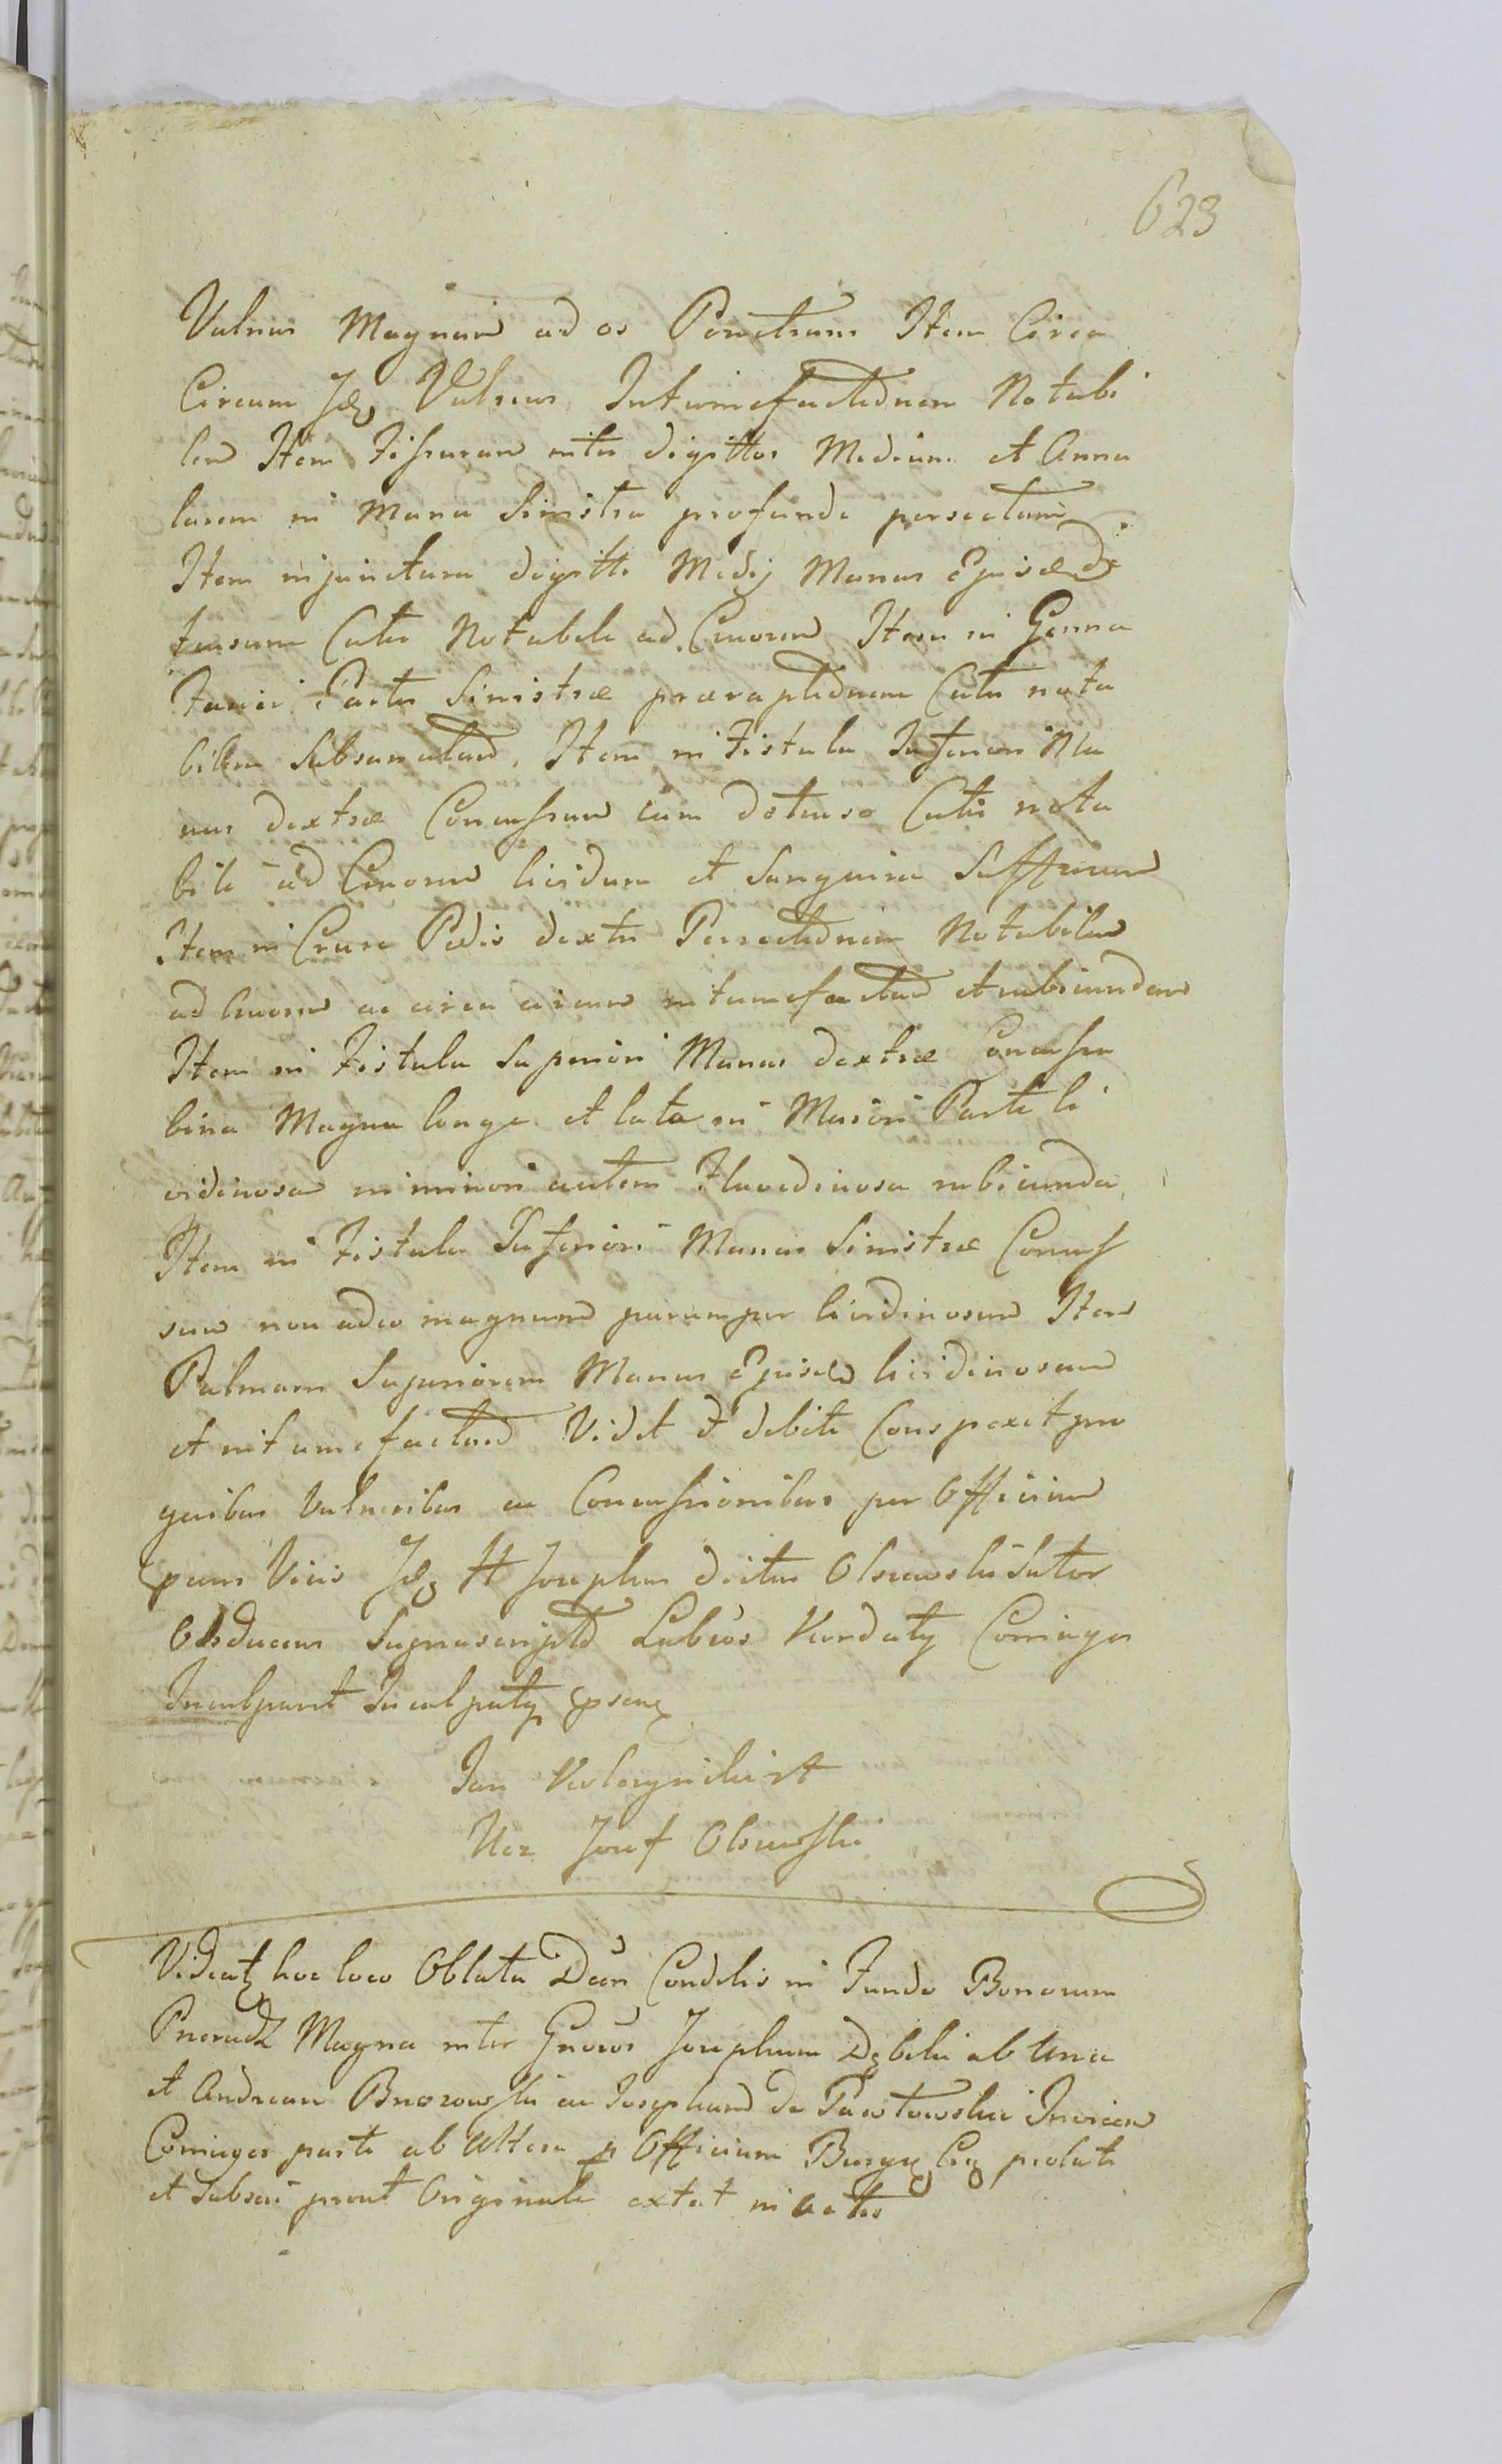 623
Vulnus Magnum ad os Penetrans Item Circa
Circum Idq Vulnus Intumefactionem Notabi
lem Item Fissuram inter digittos Medium et Annu
larem in Manu Sinistra profunde persectam
Item in junctura digitti Medij Manus Ejusdem de
tusum Cutis Notabile ad Cruorem Item in Genna
Faciei Partis Sinistræ præraptionem Cutis nota
bilem Subsanatam, Item in Fistula Inferiori Ma
nus dextræ Concussum cum detuso Cutis nota
bili ad Cruorem lividum et Sanguine Suffusum
Item in Crure Pedis dextri Persectionem Notabilem
ad Cruorem ac circa circum intumefactam et rubicundam
Item in Fistula Superiori Manus dextræ Concussa
bina Magna longa et lata in Maiori Parte li
vidinosa in minori autem Flavedinosa rubicunda,
Item in Fistula Inferiori Manus Sinistræ Concus
sum non adeo magnum parumper lividinosum Item
Palmam Superiorem Manus Ejusdem lividinosam
et intumefactam Vidit et debite Conspexit pro
quibus Vulneribus ac Concussionibus per Officium
Vivis Idq H Josephus dictus Olszewski Sutor
Obducens Suprascriptos Labos Conjuges
Inculpavit Inculpatq
Jan
Josef Olszewski
Videatq hoc loco Oblata Decti Condelis in Fundo Bonorum
Magna inter Gnosos Josephum Dębski ab Una
et Andream Brzozowski ac Josepham de Pawłowskie Invicem
Conjuges parte ab Altera p Officium Burgq Crq prolati
et Subscri prout Originale extat in Actis